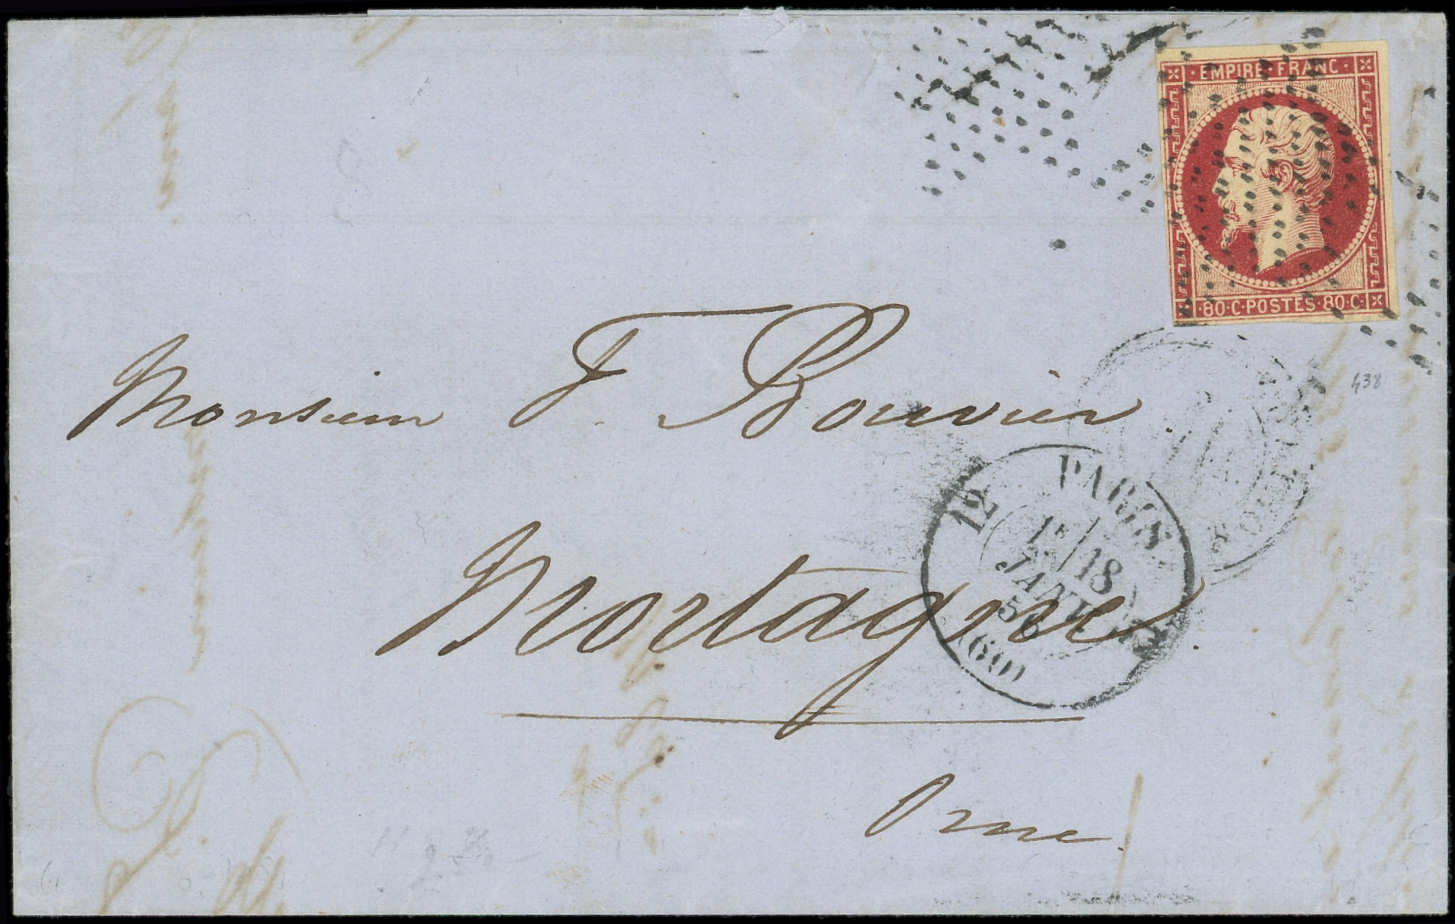 · EMPIRE · FRANC ·
· 80 · C · POSTES · 80 · C ·
438
Monsieur F. Bouvier
PARIS
1E 18
JANV.
56
(60)
Mortagne
Orne